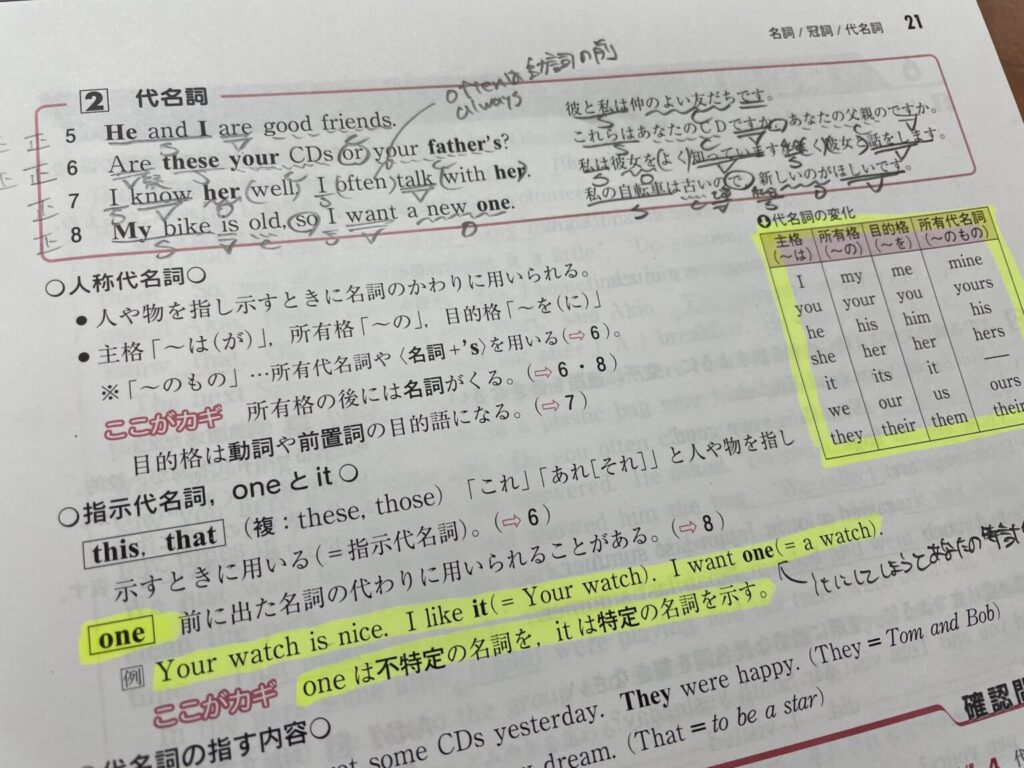 名詞/冠詞/代名詞 21
2 代名詞
oftenは動詞の前
always
正 5 He and I are good friends. 彼と私は仲のよい友だちです。
正 6 Are these your CDs or your father's? これらはあなたのCDですか、あなたの父親のですか。
正 7 I know her well, I often talk with her. 私は彼女をよく知っています
正 8 My bike is old, so I want a new one. 私の自転車は古いので,新しいのがほしいです。
S V O
○人称代名詞○
● 人や物を指し示すときに名詞のかわりに用いられる。
● 主格「〜は(が)」,所有格「〜の」,目的格「〜を(に)」
※「〜のもの」…所有代名詞や〈名詞+'s〉を用いる(⇨6)。
ここがカギ 所有格の後には名詞がくる。(⇨6・8)
目的格は動詞や前置詞の目的語になる。(⇨7)
代名詞の変化
主格(〜は) 所有格(〜の) 目的格(〜を) 所有代名詞(〜のもの)
I my me mine
you your you yours
he his him his
she her her hers
it its it ―
we our us ours
they their them
○指示代名詞,oneとit○
this, that (複:these, those)「これ」「あれ[それ]」と人や物を指し
示すときに用いる(=指示代名詞)。(⇨6)
one 前に出た名詞の代わりに用いられることがある。(⇨8)
例 Your watch is nice. I like it(= Your watch). I want one(= a watch).
ここがカギ oneは不特定の名詞を,itは特定の名詞を示す。
←itにしてしまうとあなたの
代名詞の指す内容○
some CDs yesterday. They were happy. (They = Tom and Bob)
dream. (That = to be a star)
確認問